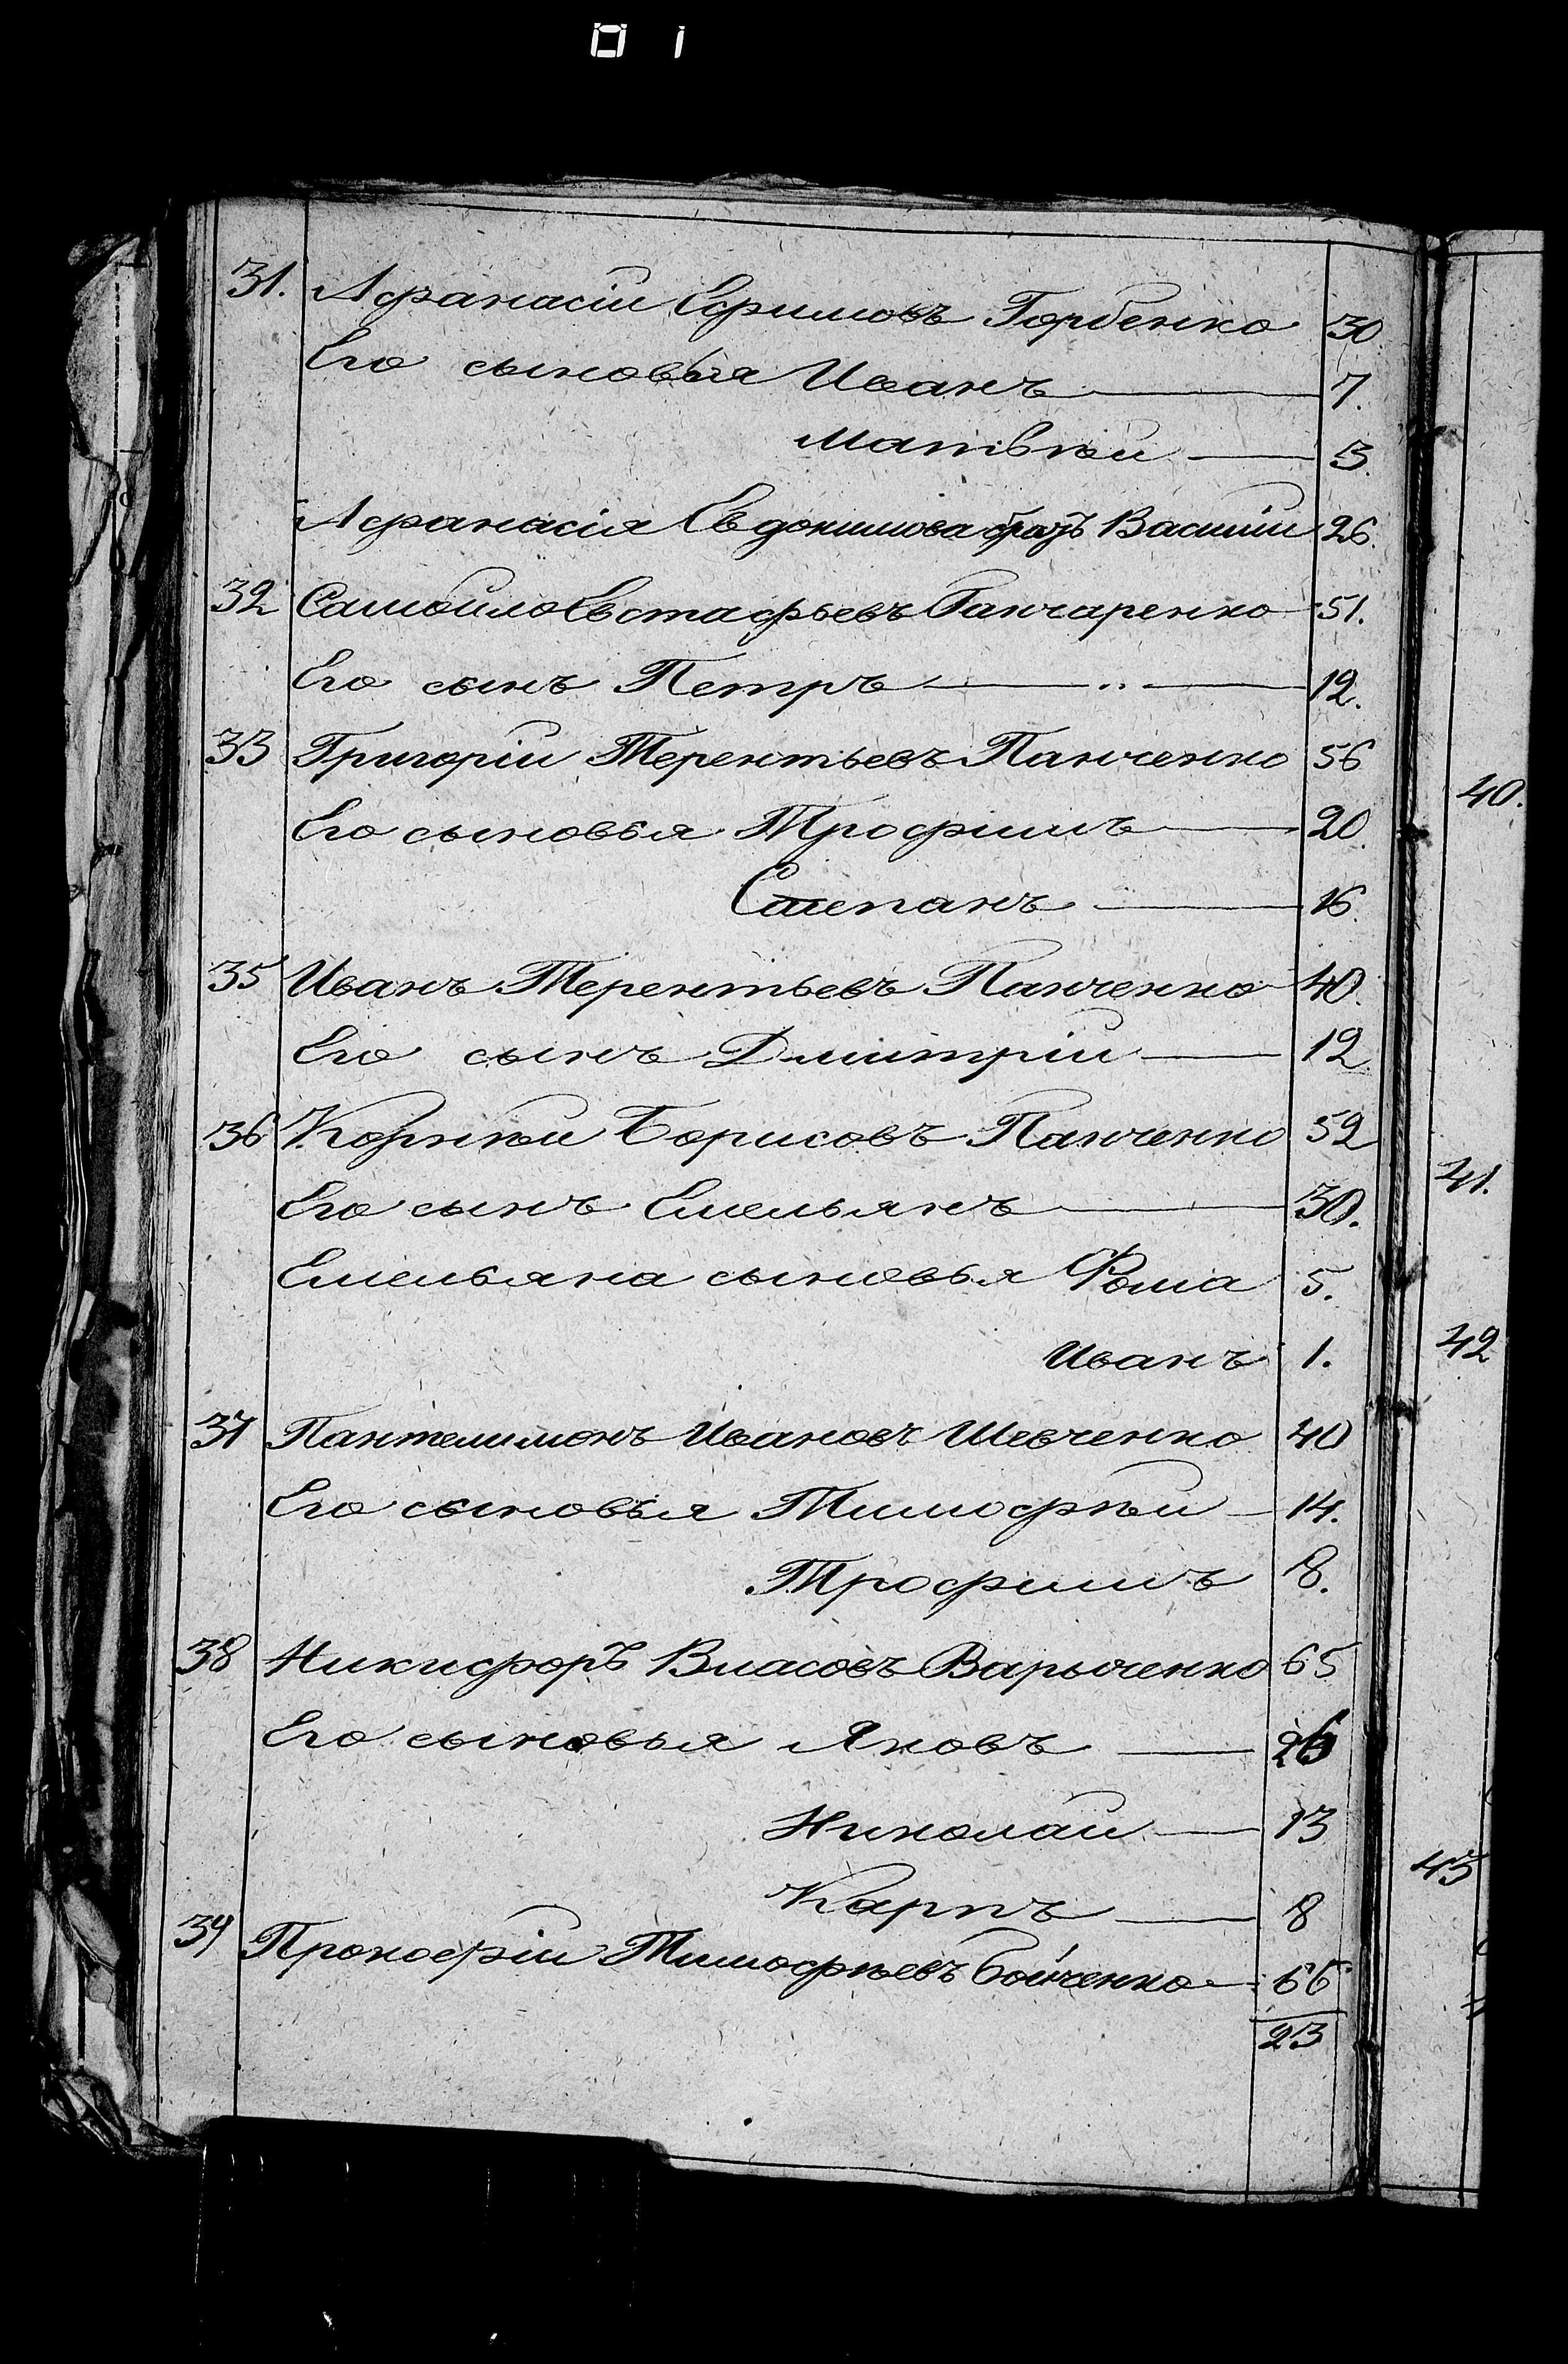 31. Афанасій Ефимовъ Горбенко 30
Его сыновья Иванъ 7.
Матвѣй 3.
Афанасія Евдокимова братъ Василій 26.
32 Самойло Евстафьевъ Ганчаренко 51.
Его сынъ Петръ 12.
33 Григорій Терентьевъ Панченко 56
Его сыновья Трофимъ 20.
Степанъ 16.
35 Иванъ Терентьевъ Панченко 40.
Его сынъ Дмитрій 12
36 Корнѣй Борисовъ Панченко 52
Его сынъ Емельянъ 30.
Емельяна сыновья Фома 5.
Иванъ 1.
37 Пантелимонъ Ивановъ Шевченко 40
Его сыновья Тимофѣй 14.
Трофимъ 8.
38 Никифоръ Власовъ Варыченко 65
Его сыновья Яковъ 26
Николай 13
Карпъ 8
39 Прокофій Тимофѣевъ Бойченко 66
23
40.
41.
42
43